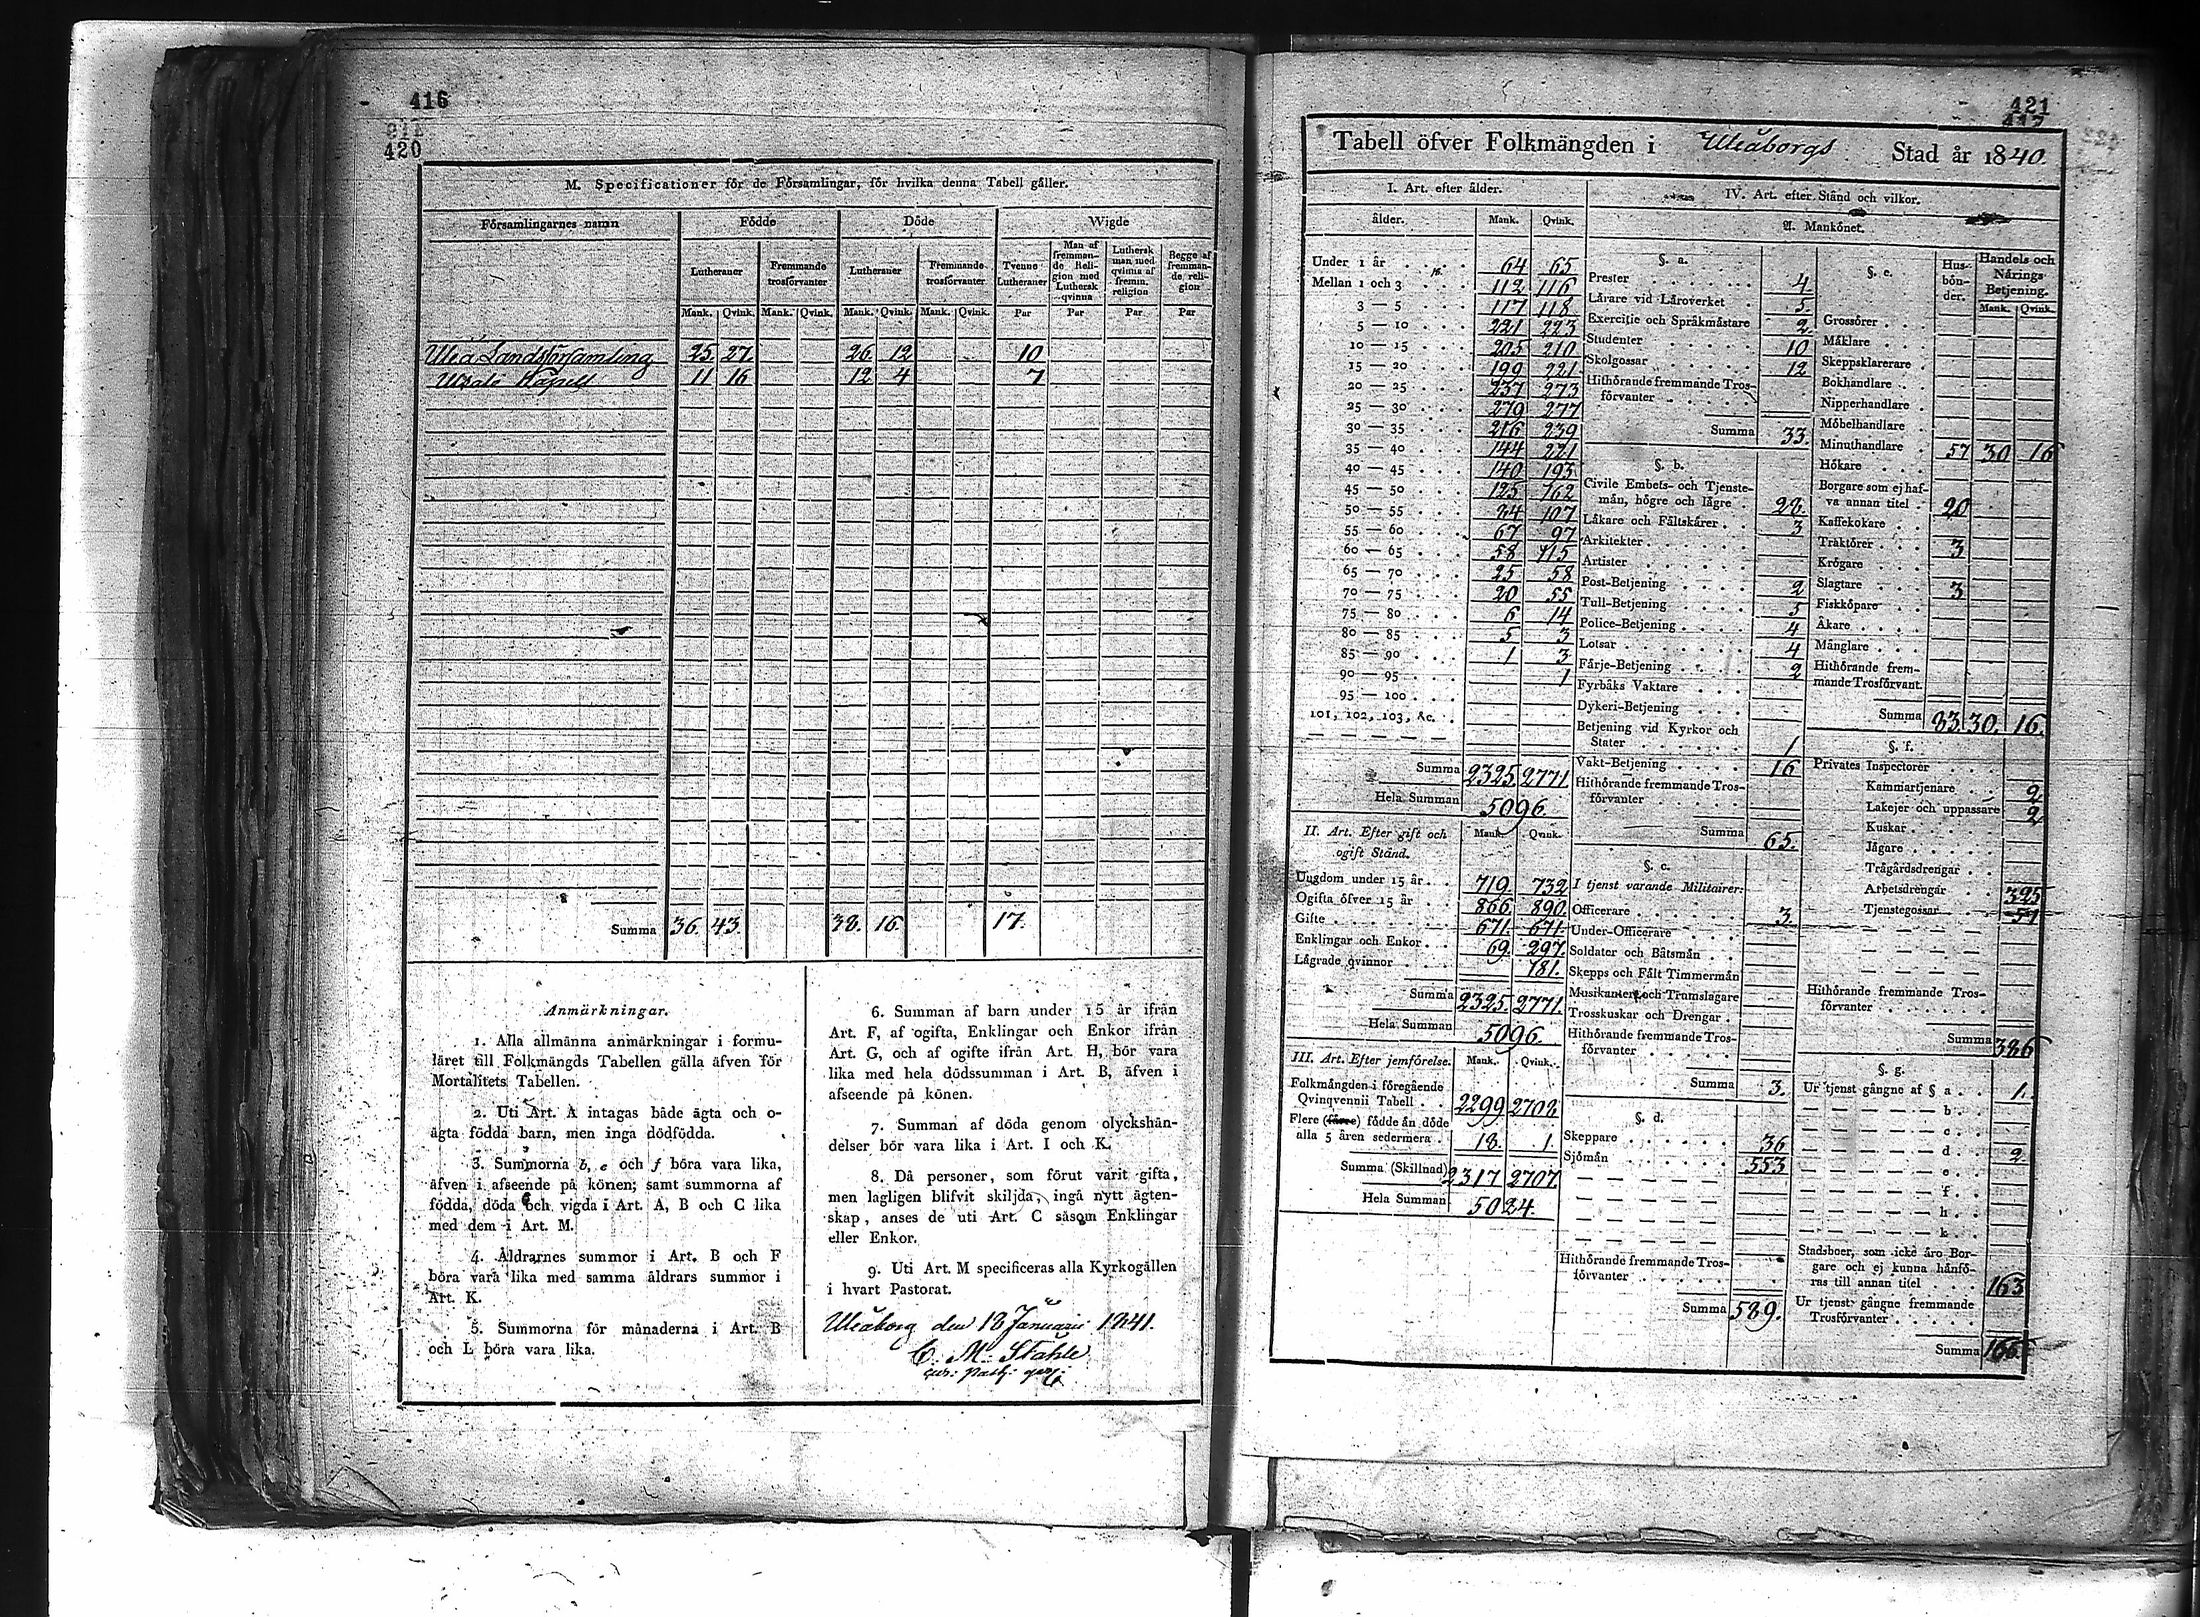 416
211
420
M. Specificationer för de Församlingar, för hvilka denna Tabell gäller.
Församlingarnes namn Födde Döde Wigde
Lutheraner Fremmande trosförvanter Lutheraner Fremmande trosförvanter Tvenne Lutheraner Man af fremmande Religion med Luthersk qvinna Luthersk man med qvinna af fremm. religion Begge af fremmande religion
Mank. Qvink. Mank. Qvink. Mank. Qvink. Mank. Qvink. Par Par Par Par
Uleå Landsförsamling 25 27 26 12 10
Kapell 11 16 12 4 7
Summa 36. 43. 38. 16. 17.
Anmärkningar.
1. Alla allmänna anmärkningar i formu-
läret till Folkmängds Tabellen gälla äfven för
Mortalitets Tabellen.
2. Uti Art. A intagas både ägta och o-
ägta födda barn, men inga dödfödda.
3. Summorna b, e och f böra vara lika,
äfven i afseende på könen; samt summorna af
födda, döda och vigda i Art. A, B och C lika
med dem i Art. M.
4. Åldrarnes summor i Art. B och F
böra vara lika med samma åldrars summor i
Art. K.
5. Summorna för månaderna i Art. B
och L böra vara lika.
6. Summan af barn under 15 år ifrån
Art. F, af ogifta, Enklingar och Enkor ifrån
Art. G, och af ogifte ifrån Art. H, bör vara
lika med hela dödssumman i Art. B, äfven i
afseende på könen.
7. Summan af döda genom olyckshän-
delser bör vara lika i Art. I och K.
8. Då personer, som förut varit gifta,
men lagligen blifvit skiljda, ingå nytt ägten-
skap, anses de uti Art. C såsom Enklingar
eller Enkor.
9. Uti Art. M specificeras alla Kyrkogällen
i hvart Pastorat.
Uleåborg den 18 Januarii 1841.
C. M. Ståhle
421
417
Tabell öfver Folkmängden i Uleåborgs Stad år 1840.
I. Art. efter ålder.
ålder. Mank. Qvink.
Under 1 år 64 65
Mellan 1 och 3 112 116
3 — 5 117 118
5 — 10 221 223
10 — 15 205 210
15 — 20 199 221
20 — 25 237 273
25 — 30 279 277
30 — 35 216 239
35 — 40 144 221
40 — 45 140 193
45 — 50 125 162
50 — 55 84 107
55 — 60 67 97
60 — 65 58 115
65 — 70 25 58
70 — 75 20 55
75 — 80 6 14
80 — 85 5 3
85 — 90 1 3
90 — 95 1
95 — 100
101, 102, 103, &c.
Summa 2325. 2771.
Hela Summan 5096.
II. Art. Efter gift och ogift Stånd. Mank. Qvink.
Ungdom under 15 år 719. 732
Ogifta öfver 15 år 866. 890.
Gifte 671. 671.
Enklingar och Enkor 69. 297.
Lägrade qvinnor 181.
Summa 2325. 2771.
Hela Summan 5096.
III. Art. Efter jemförelse. Mank. Qvink.
Folkmängden i föregående
Qvinqvennii Tabell 2299 2708.
Flere (färre) födde än döde
alla 5 åren sedermera 18. 1.
Summa (Skillnad) 2317 2707
Hela Summan 5024.
IV. Art. efter Stånd och vilkor.
A. Mankönet.
§. a.
Prester 4
Lärare vid Läroverket 5.
Exercitie och Språkmästare 2
Studenter 10
Skolgossar 12
Hithörande fremmande Tros-
förvanter
Summa 33.
§. b.
Civile Embets- och Tjenste-
män, högre och lägre 28
Läkare och Fältskärer 3
Arkitekter
Artister
Post-Betjening 2
Tull-Betjening 5
Police-Betjening 4
Lotsar 4
Färje-Betjening 2
Fyrbåks Vaktare
Dykeri-Betjening
Betjening vid Kyrkor och
Stater 1
Vakt-Betjening 16
Hithörande fremmande Tros-
förvanter
Summa 65.
§. c.
I tjenst varande Militairer:
Officerare 3.
Under-Officerare
Soldater och Båtsmän
Skepps och Fält Timmermän
Musikanter och Trumslagare
Trosskuskar och Drengar
Hithörande fremmande Tros-
förvanter
Summa 3.
§. d.
Skeppare 36
Sjömän 553
Hithörande fremmande Tros-
förvanter
Summa 589.
§. e. Husbönder. Handels och Närings Betjening.
Mank. Qvink.
Grossörer
Mäklare
Skeppsklarerare
Bokhandlare
Nipperhandlare
Möbelhandlare
Minuthandlare 57 30 16
Hökare
Borgare som ej haf-
va annan titel 20
Kaffekokare
Traktörer 3
Krögare
Slagtare 3
Fiskköpare
Åkare
Månglare
Hithörande frem-
mande Trosförvant.
Summa 83. 30. 16.
§. f.
Privates Inspectorer
Kammartjenare 2
Lakejer och uppassare 2
Kuskar
Jägare
Trägårdsdrengar
Arbetsdrengar 325
Tjenstegossar 57
Hithörande fremmande Tros-
förvanter
Summa 386
§. g.
Ur tjenst gångne af § a 1.
b.
c.
d. 2.
e.
f.
h.
k.
Stadsboer, som icke äro Bor-
gare och ej kunna hänfö-
ras till annan titel 163
Ur tjenst gångne fremmande
Trosförvanter
Summa 166.